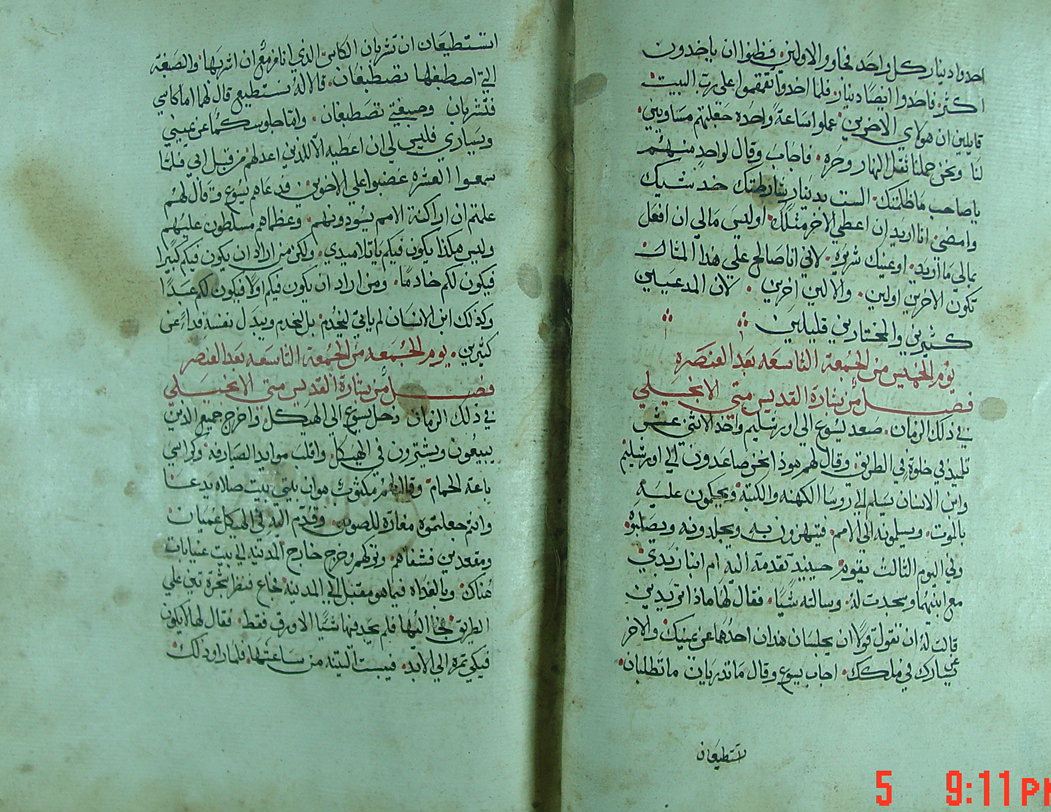 اخدوا دينار كل واحد فجاوا الاولين فظنوا ان ياخدون
اكثر فاخدوا ايضا دينار فلما اخدوا تقمقموا على رب البيت
قايلين ان هولاي الاخرين عملوا ساعة واحده جعلتهم مساويين
لنا ونحن حملنا ثقل النهار وحره فاجاب وقال لواحد منهم
ياصاحب ماظلمتك الست بدينار شارطتك خد شيك
وامضى انا اريد ان اعطي الاخر مثلك اوليس مالي ان افعل
بمالي ما اريد اوعينك شريره لاني انا صالح على هدا المثال
تكون الاخرين اولين والاولين اخرين لان المدعيين
كثيرين والمختارين قليلين
يوم الخميس من الجمعة التاسعه بعد العنصره
فصل من بشارة القديس متى الانجيلي
في دلك الزمان صعد يسوع الى اورشليم واخد الاثنى عشر
تلميد في خلوة في الطريق وقال لهم هودا نحن صاعدون الى اورشليم
وابن الانسان يسلم الى روسا الكهنه والكتبه ويحكمون عليه
بالموت ويسلمونه الى الامم فيتهزون به ويجلدونه ويصلبوه
وفي اليوم الثالث يقوم حينيد تقدمة اليه ام ابنا زبدي
مع ابنيها وسجدت له وسالته شيا فقال لها مادا تريدين
قالت له ان تقول قولا ان يجلسان هدان احدهما عن يمينك والاخر
عن يسارك في ملكك اجاب يسوع وقال ما تدريان ما تطلبان
اتستطيعان
اتستطيعان ان تشربان الكاس الدي انا مزمع ان اشربها والصبغة
التي اصطبغها تصطبغان قالا له نستطيع قال لهما اما كاسي
فتشربان وصبغتي تصطبغان واما جلوسكما عن يميني
ويساري فليس لي ان اعطيه الا للدين اعد لهم من قبل ابي فلما
سمعوا العشره غضبوا على الاخوين فدعاهم يسوع وقال لهم
علمتم ان اراكنة الامم يسودونهم وعظماهم مسلطون عليهم
وليس هكدا يكون فيكم ياتلاميدي ولكن من اراد ان يكون فيكم كبيرا
فيكون لكم خادما ومن اراد ان يكون فيكم اولا فيكون لكم عبدا
وكدلك ابن الانسان لم ياتي ليخدم بل ليخدم ويبدل نفسه فدا عن
كثيرين يوم الجمعه من الجمعة التاسعه بعد العنصره
فصل من بشارة القديس متى الانجيلي
في دلك الزمان دخل يسوع الى الهيكل واخرج جميع الدين
يبيعون ويشترون في الهيكل واقلب موايد الصيارفه وكراسي
باعة الحمام وقال لهم مكتوب هو ان بيتي بيت صلاه يدعا
وانتم جعلتموه مغارة للصوص وقدم اليه في الهيكل عميان
ومقعدين فشفاهم وتركهم وخرج خارج المدينه الى بيت عنيا بات
هناك وبالغداه فيما هو مقبل الى المدينه جاع فنظر شجرة تين على
الطريق فجا اليها فلم يجد فيها شيا الا ورق فقط فقال لها لا يكون
فيكي تمره الى الابد فيبست التينه من ساعتها فلما راو دلك
5 9:11 PM